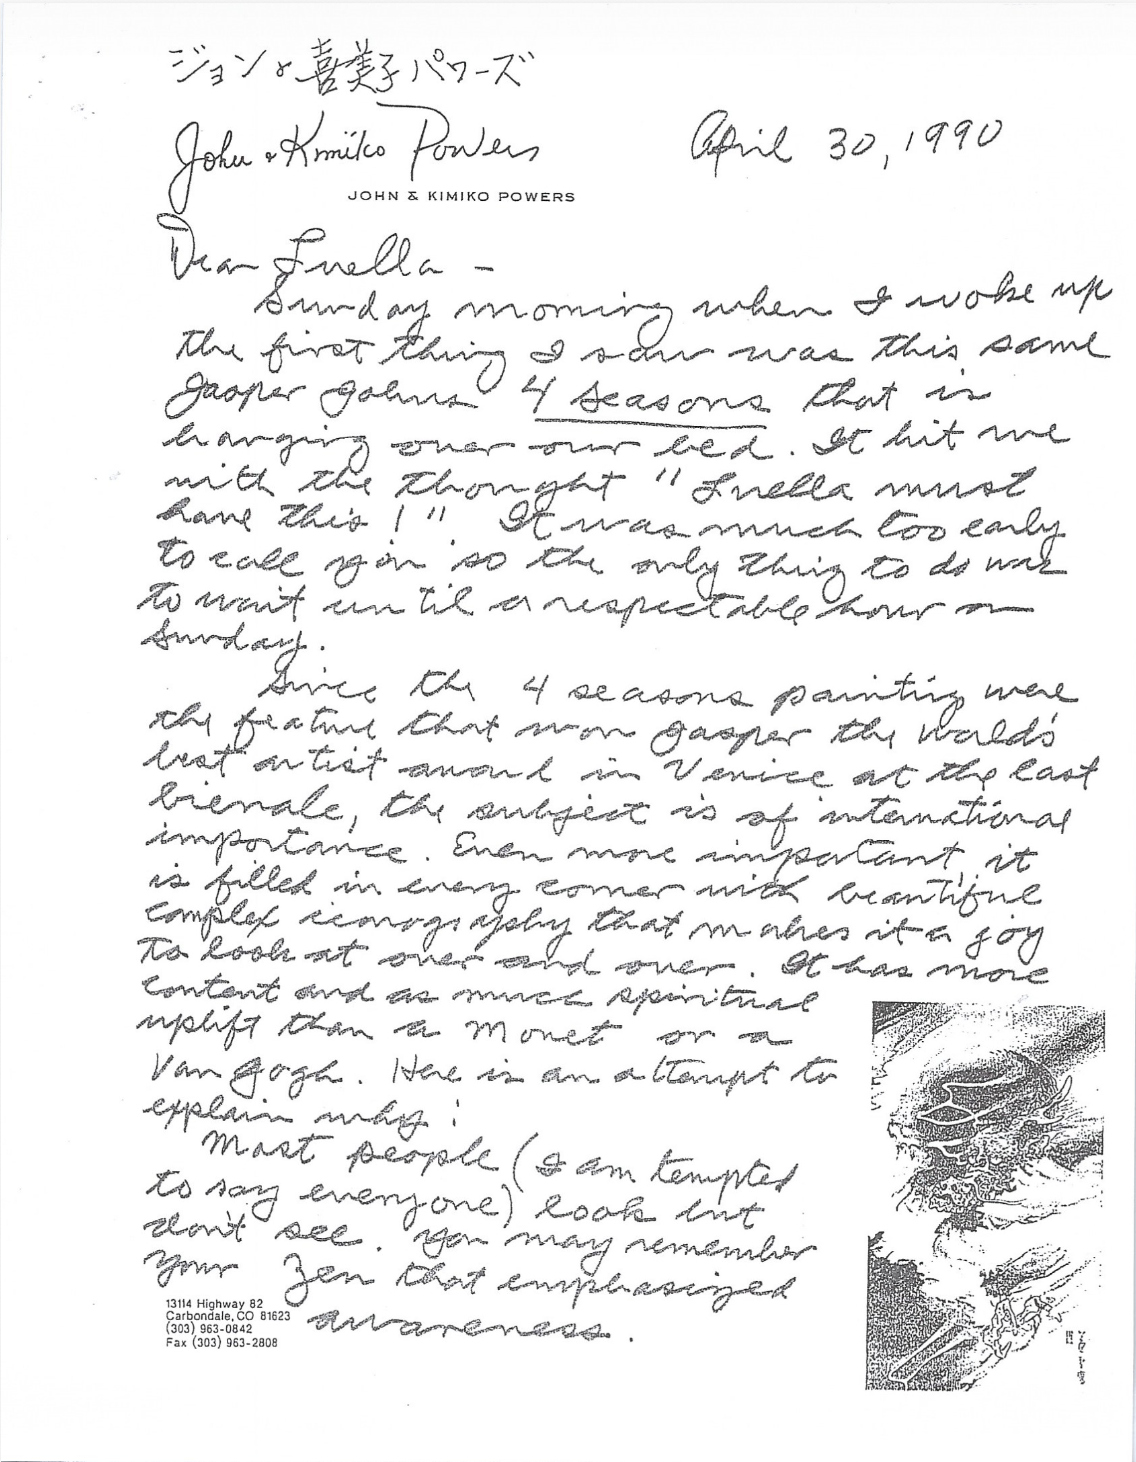 ジョン & 喜美子 パワーズ
John & Kimiko Powers
April 30, 1990
JOHN & KIMIKO POWERS
Dear Luella –
Sunday morning when I woke up
the first thing I saw was this same
Jasper Johns 4 Seasons that is
hanging over our bed. It hit me
with the thought "Luella must
have this!" It was much too early
to call you so the only thing to do was
to wait until a respectable hour on
Sunday.
Since the 4 seasons painting were
the feature that won Jasper the World's
best artist award in Venice at the last
bienale, the subject is of international
importance. Even more important, it
is filled in every corner with beautiful
complex iconography that makes it a joy
to look at over and over. It has more
content and as much spiritual
uplift than a Monet or a
Van Gogh. Here is an attempt to
explain why:
Most people (I am tempted
to say everyone) look but
don't see. You may remember
your Zen that emphasized
awareness.
13114 Highway 82
Carbondale, CO 81623
(303) 963-0842
Fax (303) 963-2808